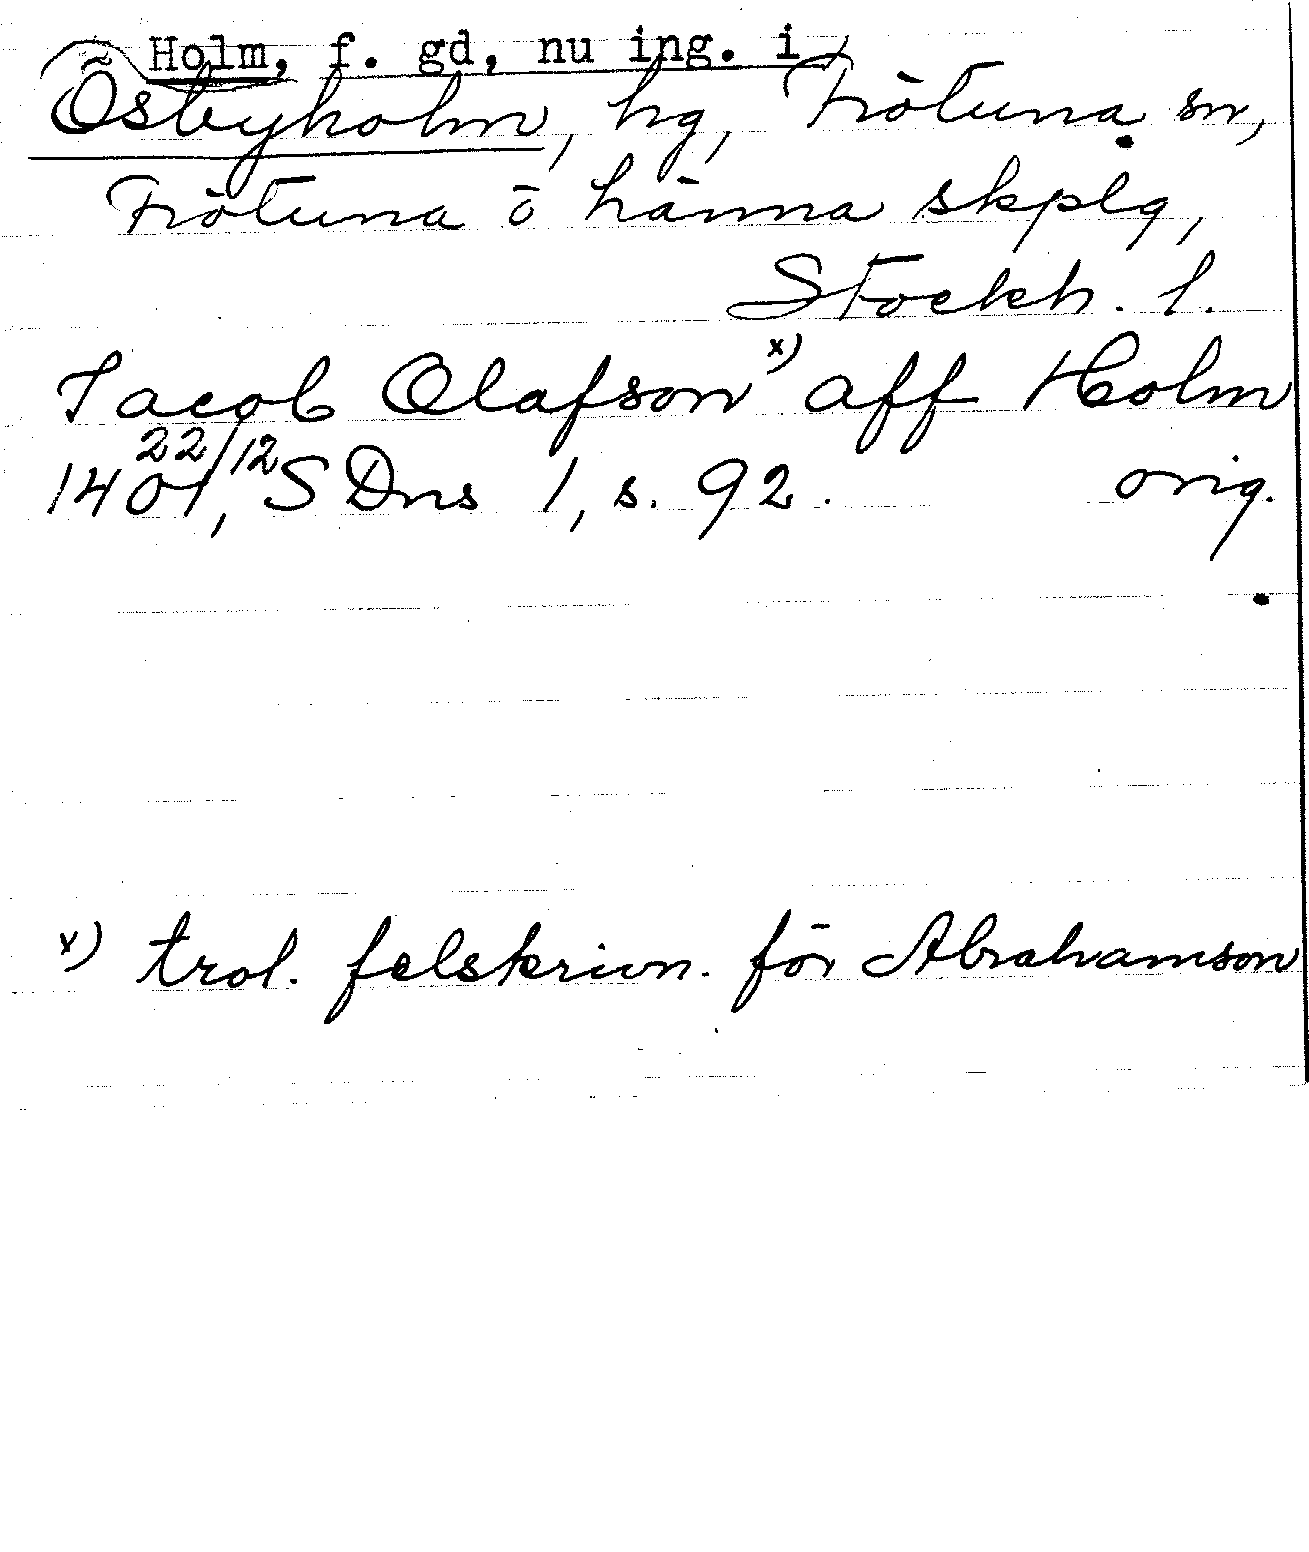 Holm, f. gd, nu ing. i
Ösbyholm, hg, Frötuna sn,
Frötuna o Länna skplg,
Stockh. l.
Jacob Olafson x) aff Holm
1401 22/12, SDns 1, s. 92. orig.
x) trol. felskrivn. för Abrahamson